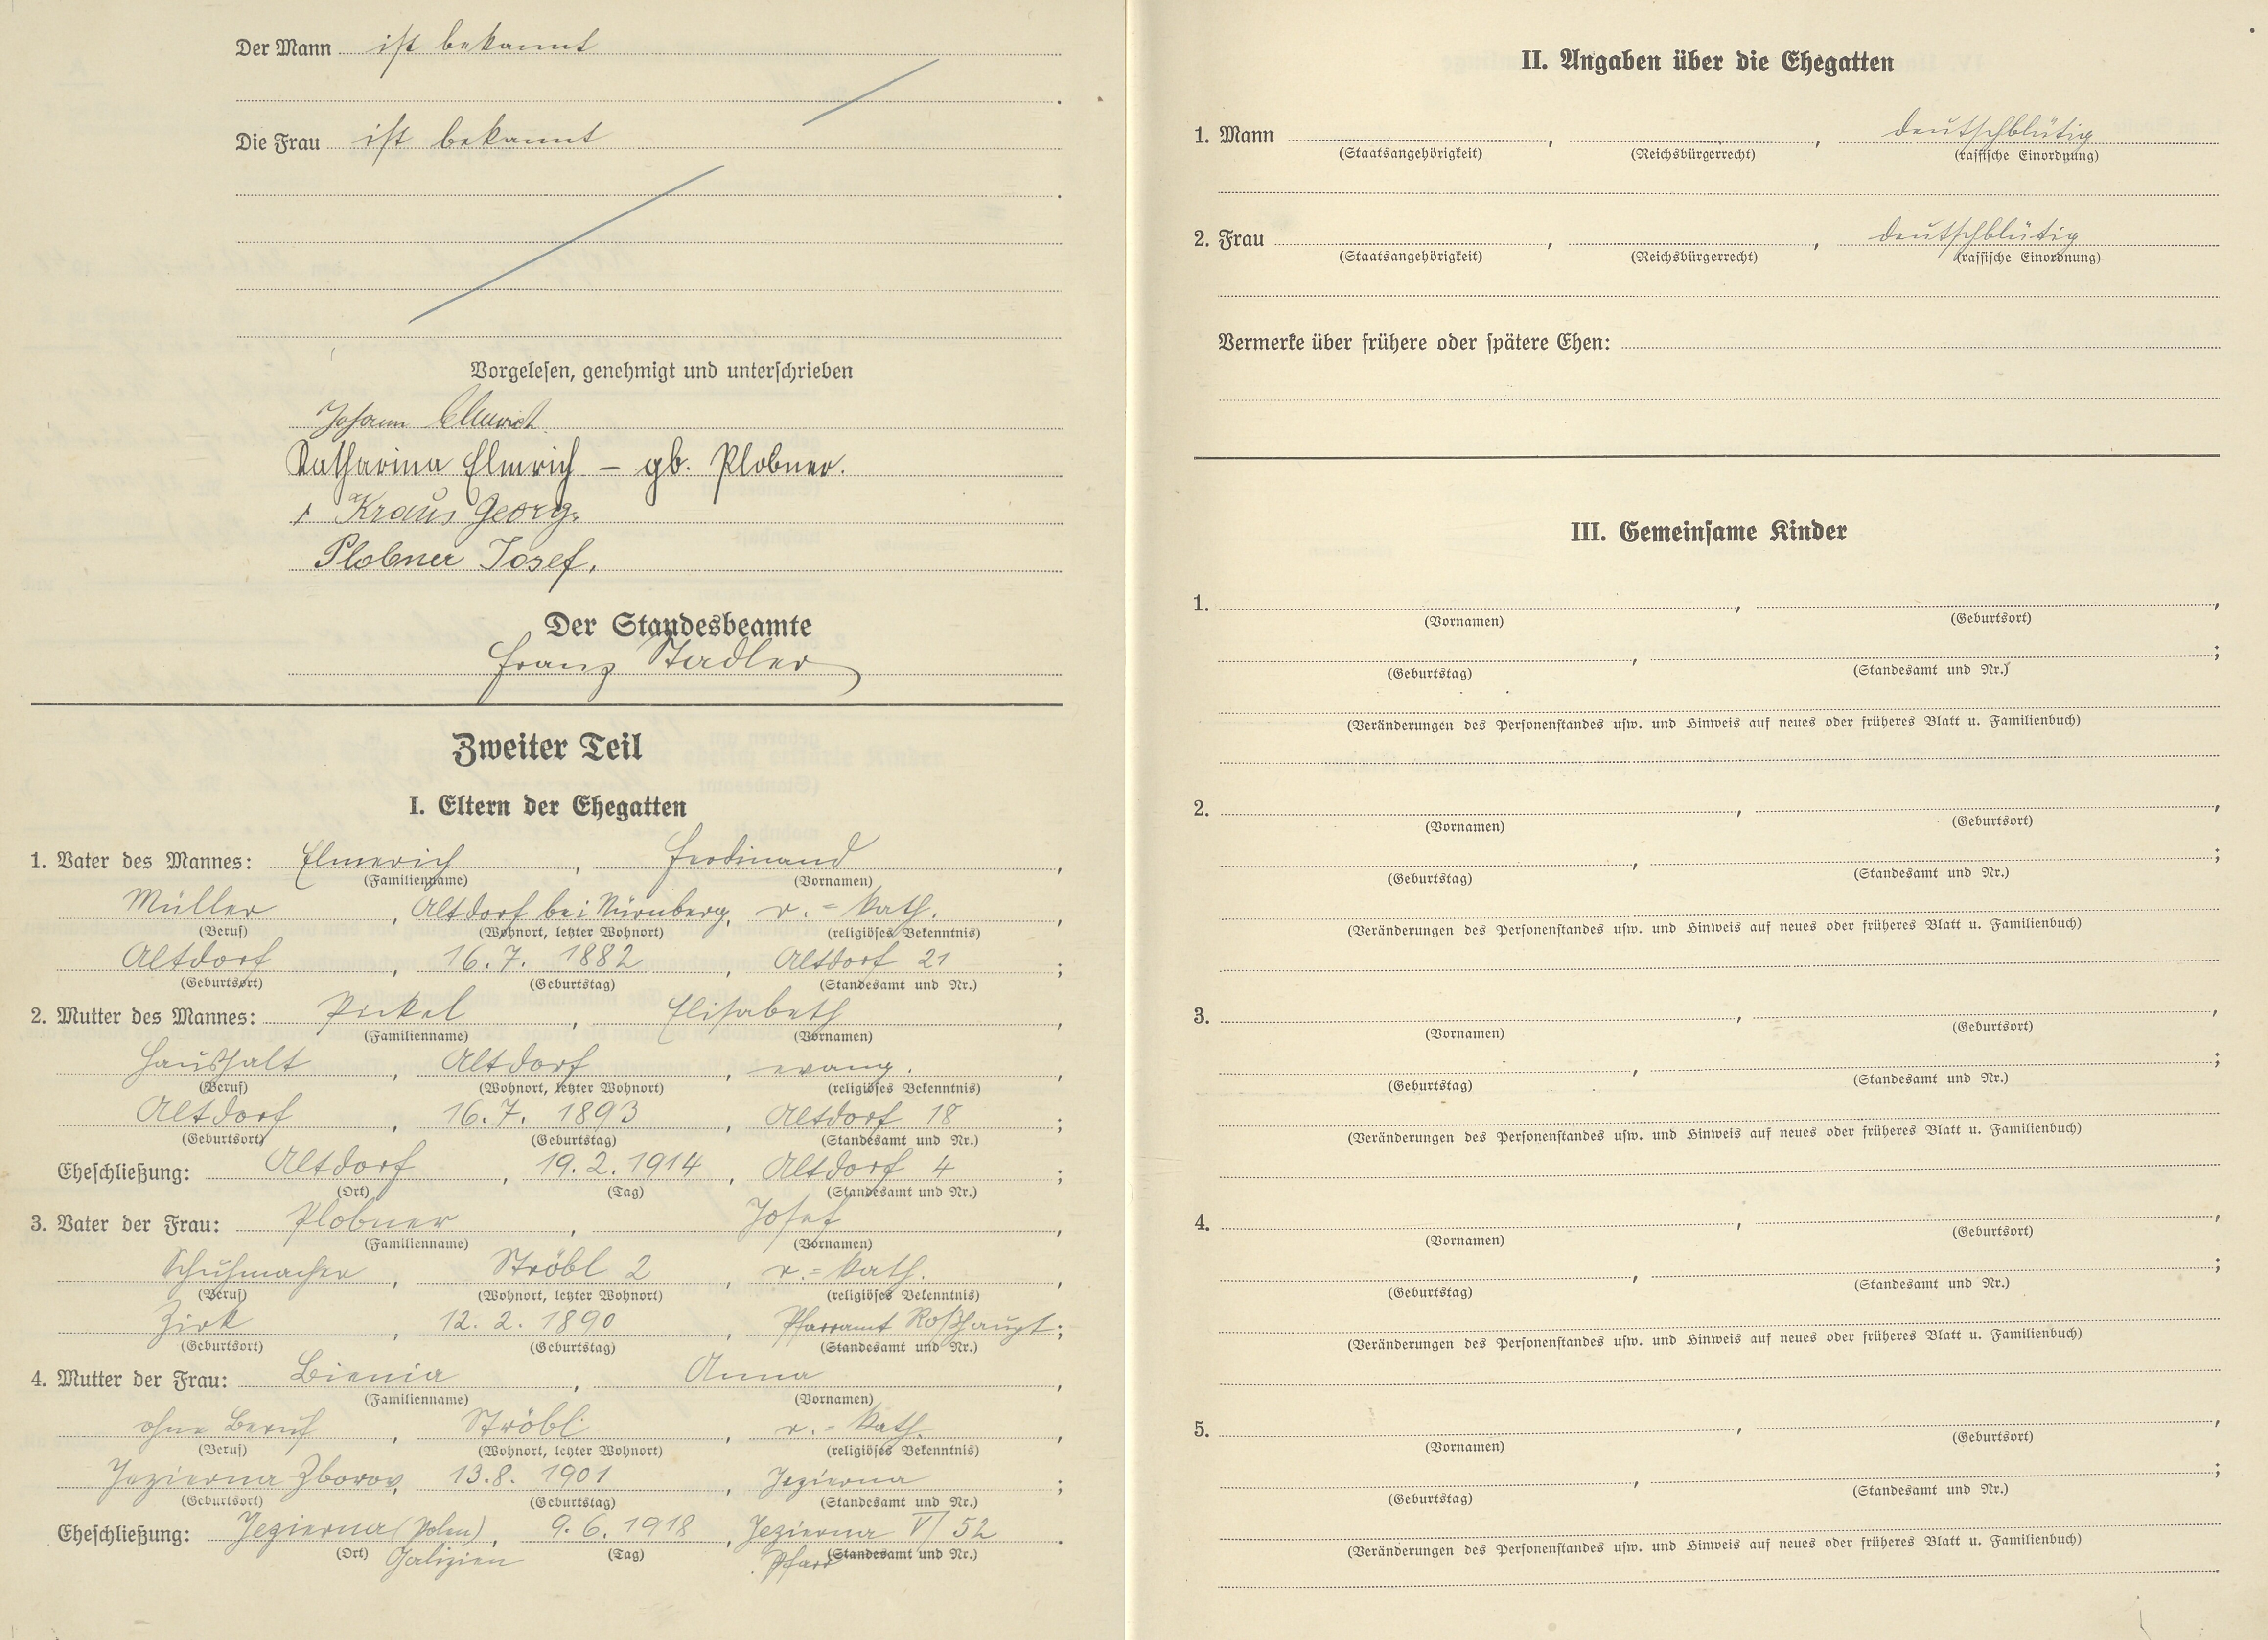 Der Mann ist bekannt
Die Frau ist bekannt
Vorgelesen, genehmigt und unterschrieben
Johann Elmerich
Katharina Elmrich – gb. Plobner.
Kraus Georg.
Plobner Josef.
Der Standesbeamte
Franz Stadler
Zweiter Teil
I. Eltern der Ehegatten
1. Vater des Mannes: Elmerich, Ferdinand,
(Familienname) (Vornamen)
Müller, Altdorf bei Nürnberg, r.=kath.,
(Beruf) (Wohnort, letzter Wohnort) (religiöses Bekenntnis)
Altdorf, 16.7. 1882, Altdorf 21;
(Geburtsort) (Geburtstag) (Standesamt und Nr.)
2. Mutter des Mannes: Pickel, Elisabeth,
(Familienname) (Vornamen)
Haushalt, Altdorf, evang.,
(Beruf) (Wohnort, letzter Wohnort) (religiöses Bekenntnis)
Altdorf, 16.7. 1893, Altdorf 18;
(Geburtsort) (Geburtstag) (Standesamt und Nr.)
Eheschließung: Altdorf, 19.2.1914, Altdorf 4;
(Ort) (Tag) (Standesamt und Nr.)
3. Vater der Frau: Plobner, Josef,
(Familienname) (Vornamen)
Schuhmacher, Ströbl 2, r.=kath.,
(Beruf) (Wohnort, letzter Wohnort) (religiöses Bekenntnis)
Zirk, 12.2.1890, Pfarramt Roßhaupt;
(Geburtsort) (Geburtstag) (Standesamt und Nr.)
4. Mutter der Frau: Bienia, Anna,
(Familienname) (Vornamen)
ohne Beruf, Ströbl, r.=kath.,
(Beruf) (Wohnort, letzter Wohnort) (religiöses Bekenntnis)
Jezierna Zborov, 13.8. 1901, Jezierna;
(Geburtsort) (Geburtstag) (Standesamt und Nr.)
Eheschließung: Jezierna (Polen), 9.6.1918, Jezierna VI/52.
(Ort) Galizien (Tag) Pfarr (Standesamt und Nr.)
II. Angaben über die Ehegatten
1. Mann , , deutschblütig
(Staatsangehörigkeit) (Reichsbürgerrecht) (rassische Einordnung)
2. Frau , , deutschblütig
(Staatsangehörigkeit) (Reichsbürgerrecht) (rassische Einordnung)
Vermerke über frühere oder spätere Ehen:
III. Gemeinsame Kinder
1. , ,
(Vornamen) (Geburtsort)
, ;
(Geburtstag) (Standesamt und Nr.)
(Veränderungen des Personenstandes usw. und Hinweis auf neues oder früheres Blatt u. Familienbuch)
2. , ,
(Vornamen) (Geburtsort)
, ;
(Geburtstag) (Standesamt und Nr.)
(Veränderungen des Personenstandes usw. und Hinweis auf neues oder früheres Blatt u. Familienbuch)
3. , ,
(Vornamen) (Geburtsort)
, ;
(Geburtstag) (Standesamt und Nr.)
(Veränderungen des Personenstandes usw. und Hinweis auf neues oder früheres Blatt u. Familienbuch)
4. , ,
(Vornamen) (Geburtsort)
, ;
(Geburtstag) (Standesamt und Nr.)
(Veränderungen des Personenstandes usw. und Hinweis auf neues oder früheres Blatt u. Familienbuch)
5. , ,
(Vornamen) (Geburtsort)
, ;
(Geburtstag) (Standesamt und Nr.)
(Veränderungen des Personenstandes usw. und Hinweis auf neues oder früheres Blatt u. Familienbuch)